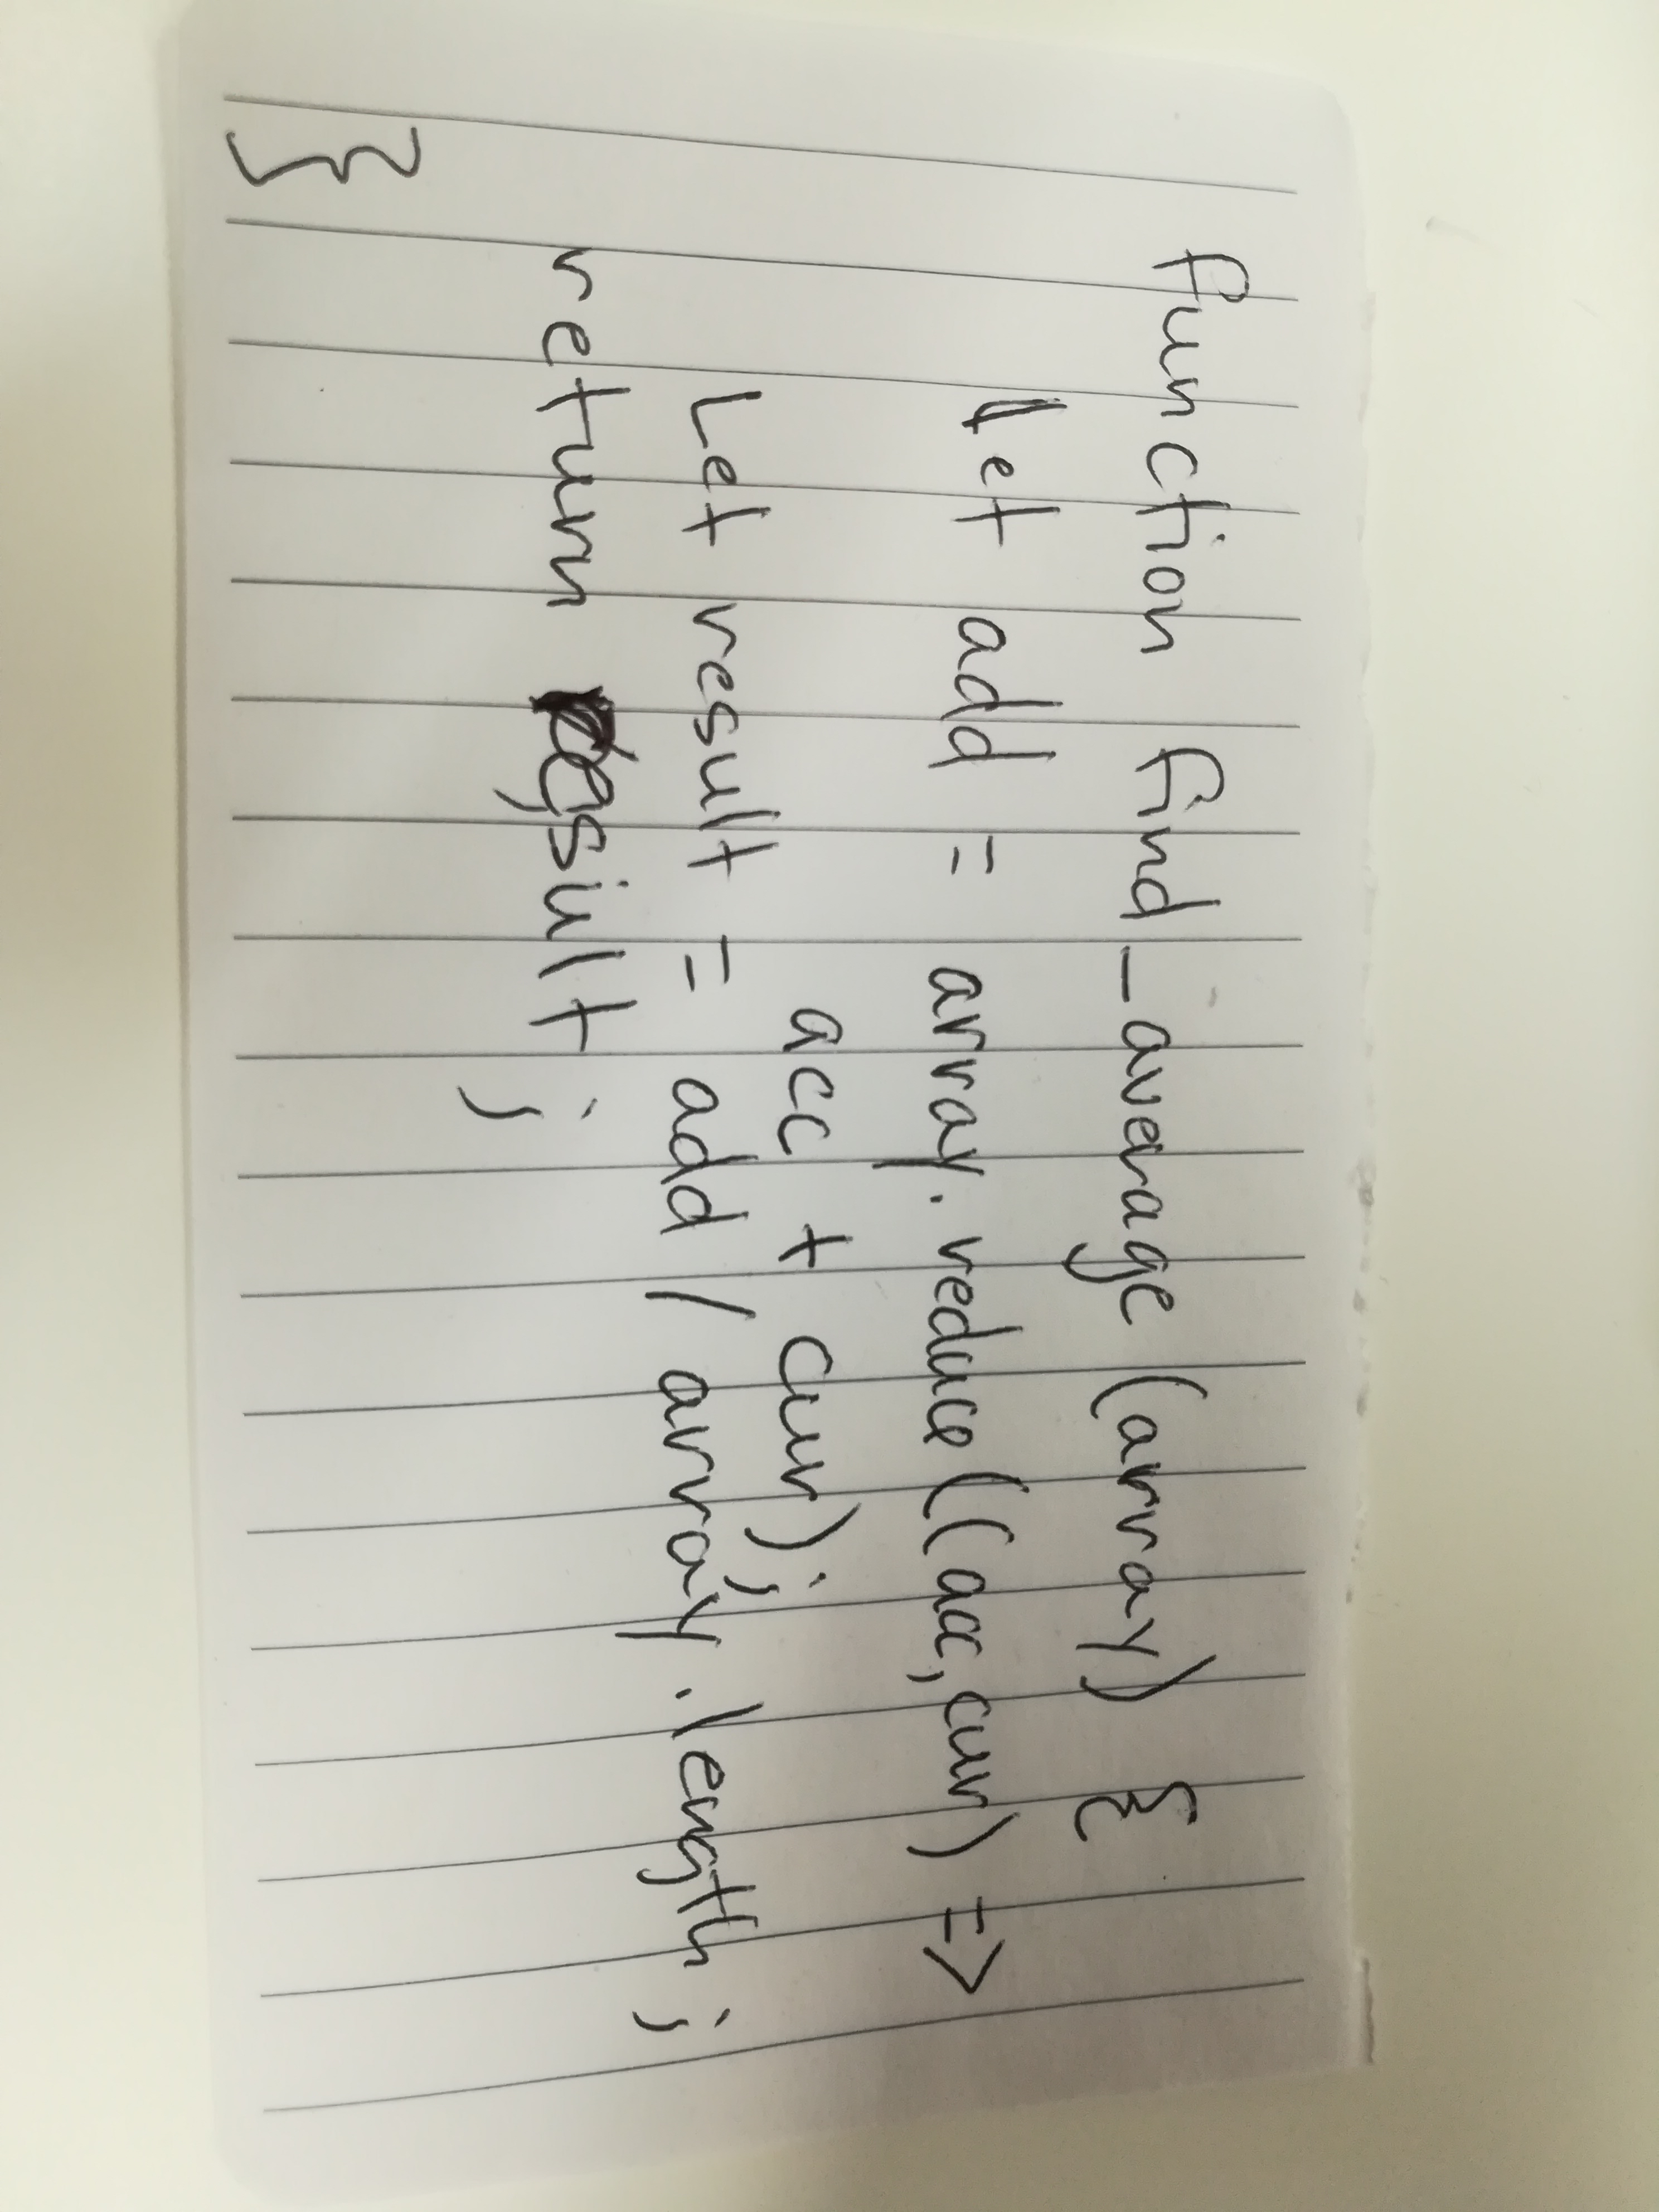 function find_average (array) {
let add = array.reduce((acc, cur) =>
acc + cur);
Let result = add / array.length;
return result;
}